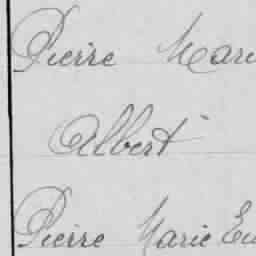 Pierre Mari
Albert
Pierre Marie Eu